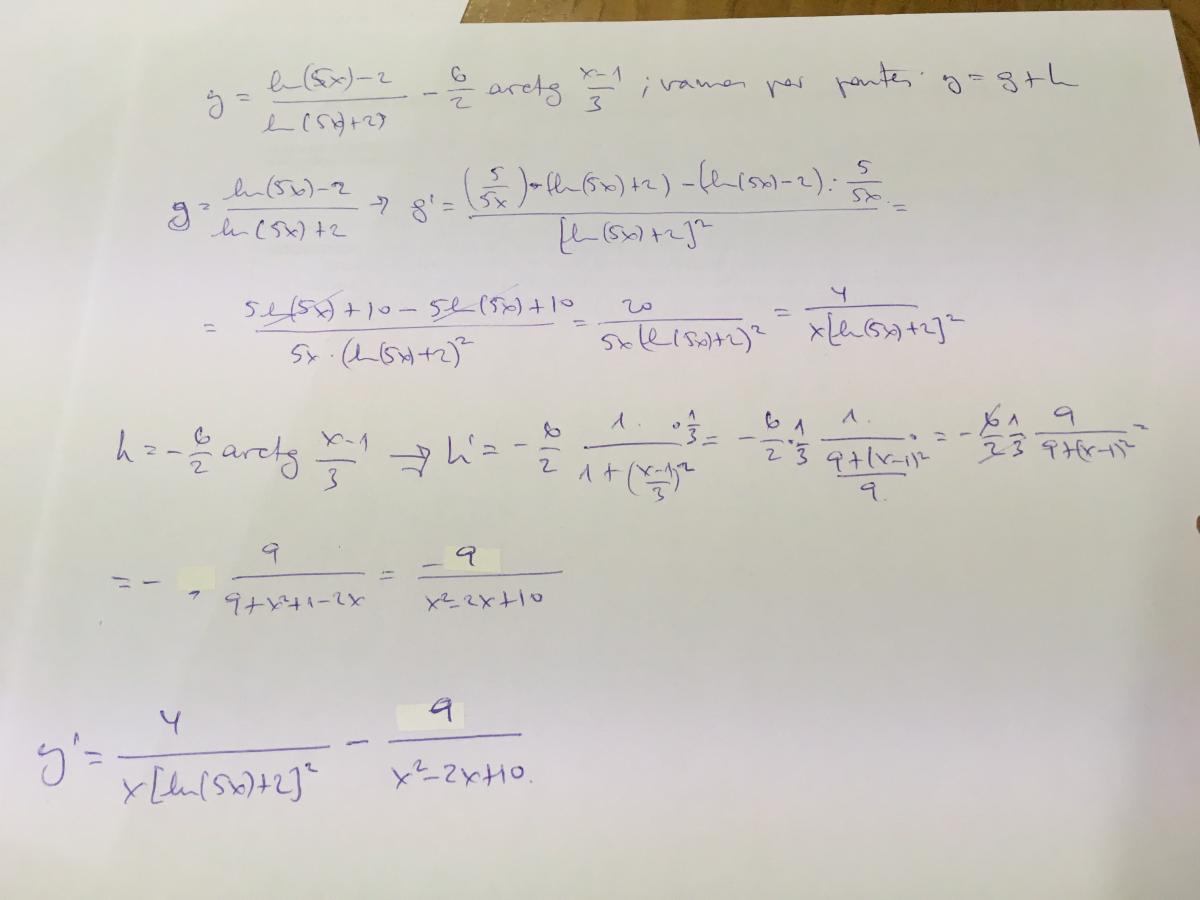 y = (ln(5x)-2)/(ln(5x)+2) - 6/2 arctg (x-1)/3 ; vamos por partes: y = g + h
g = (ln(5x)-2)/(ln(5x)+2) → g' = ((5/5x)·(ln(5x)+2) - (ln(5x)-2)·5/5x)/[ln(5x)+2]² =
= (5ln(5x)+10-5ln(5x)+10)/(5x·(ln(5x)+2)²) = 20/(5x(ln(5x)+2)²) = 4/(x[ln(5x)+2]²)
h = -6/2 arctg (x-1)/3 ⇒ h' = -6/2 1/(1+((x-1)/3)²) · 1/3 = -6/2 · 1/3 · 1/((9+(x-1)²)/9) = -6/2 1/3 9/(9+(x-1)²) =
= - 9/(9+x²+1-2x) = -9/(x²-2x+10)
y' = 4/(x[ln(5x)+2]²) - 9/(x²-2x+10).